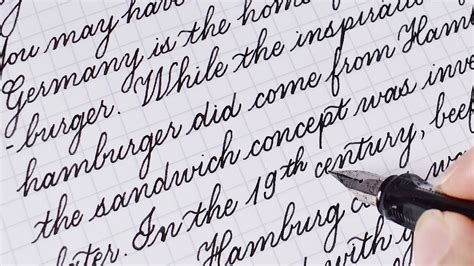 you may have
Germany is the home
-burger. While the inspiratio
hamburger did come from Ham
the sandwich concept was inve
later. In the 19th century, bee
Hamburg c wa
with g